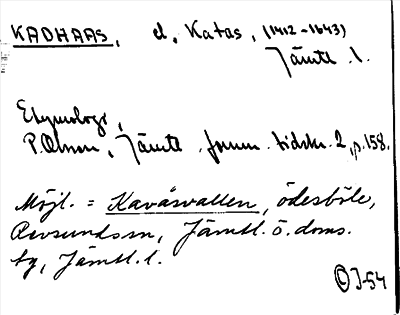 KADHAAS, el. Katas, (1412-1643)
Jämtl. l.
Etymologi,
P. Olsson, Jämtl. fornm. tidskr. 2, p. 158.
Möjl. = Kavåsvallen, ödesböle,
Revsunds sn, Jämtl. ö. doms.
tg, Jämtl. l.